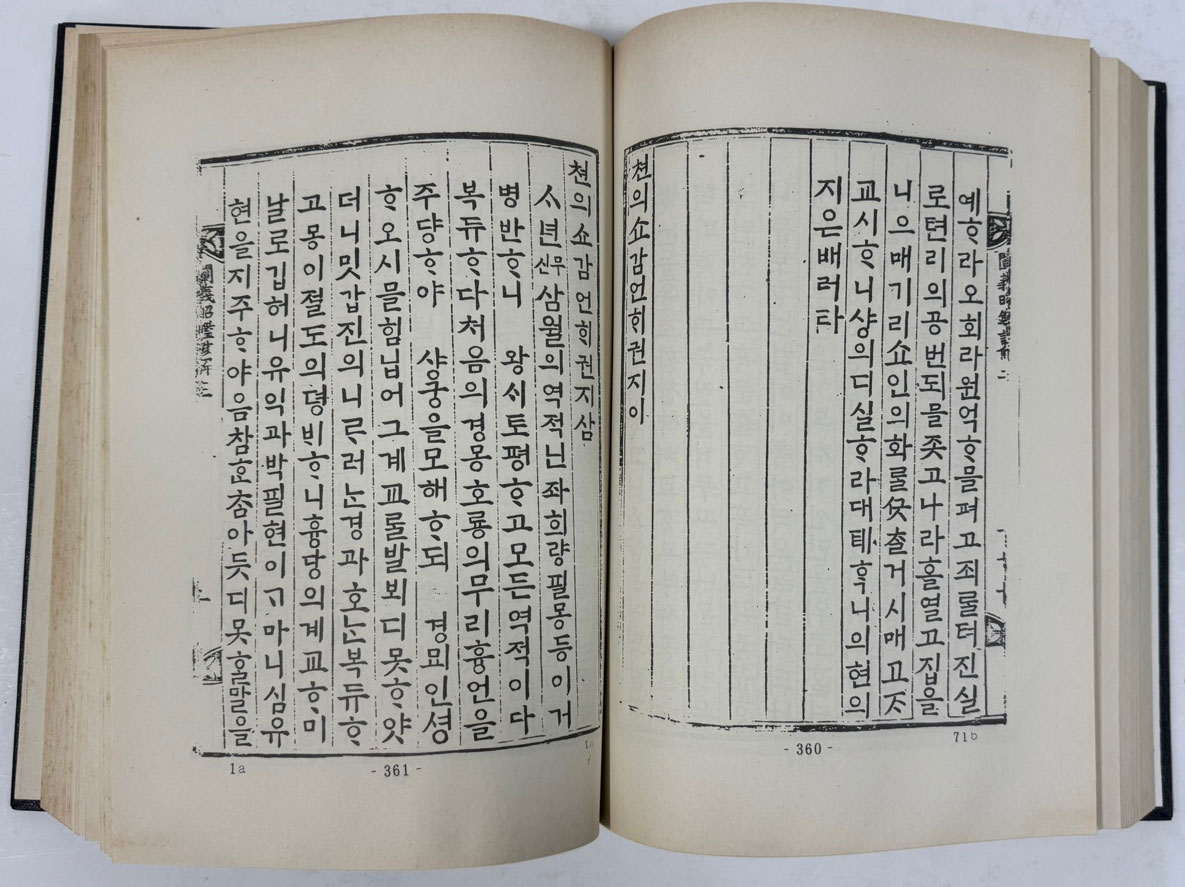 예ᄒᆞ라오회라원억ᄒᆞ믈펴고죄룰텨진실
로텬리의공번되믈좃고나라흘열고집을
니으매기리쇼인의화룰 거시매고ᄌᆞ
교시ᄒᆞ니샹의디실ᄒᆞ라대 니의현의
지은배러라
쳔의쇼감언ᄒᆡ권지이
71b
- 360 -
쳔의쇼감언ᄒᆡ권지삼
ᄉᆞ년신무삼월의역적닌좌희량필몽등이거
병반ᄒᆞ니 왕ᄉᆡ토평ᄒᆞ고모든역적이다
복듀ᄒᆞ다처음의경몽호룡의무리흉언을
주댱ᄒᆞ야 샹궁을모해ᄒᆞ되 경묘인셩
ᄒᆞ오시믈힘닙어그계교룰발뵈디못ᄒᆞ얏
더니밋갑진의니ᄅᆞ러ᄂᆞᆫ경과호ᄂᆞᆫ복듀ᄒᆞ
고몽이졀도의뎡ᄇᆡᄒᆞ니흉당의계교ᄒᆞ미
날로깁허니유익과박필현이ᄀᆞ마니심유
현을지주ᄒᆞ야음참ᄒᆞᆫᄎᆞᆷ아듯디못ᄒᆞᆯ말을
1a
- 361 -